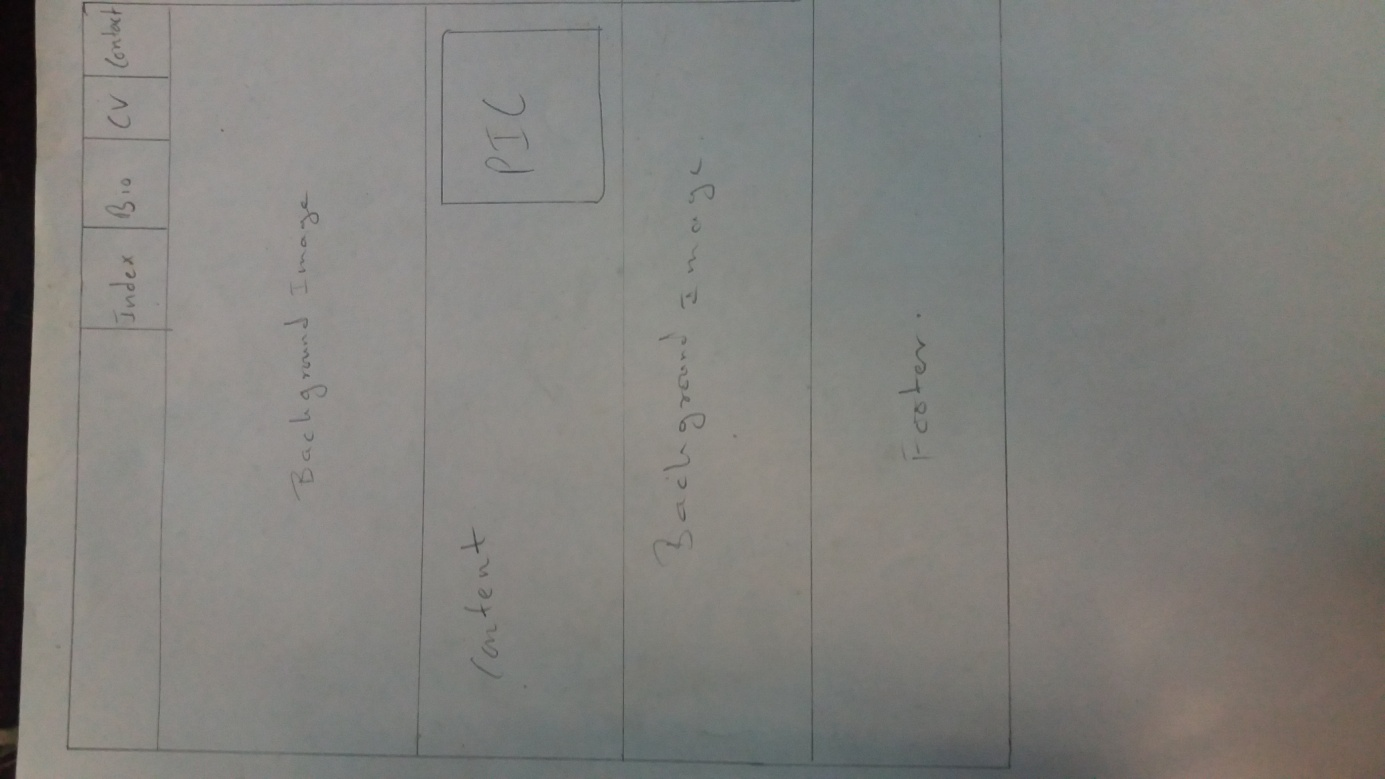 Index Bio CV Contact
Background Image
PIC
Content
Background Image.
Footer.